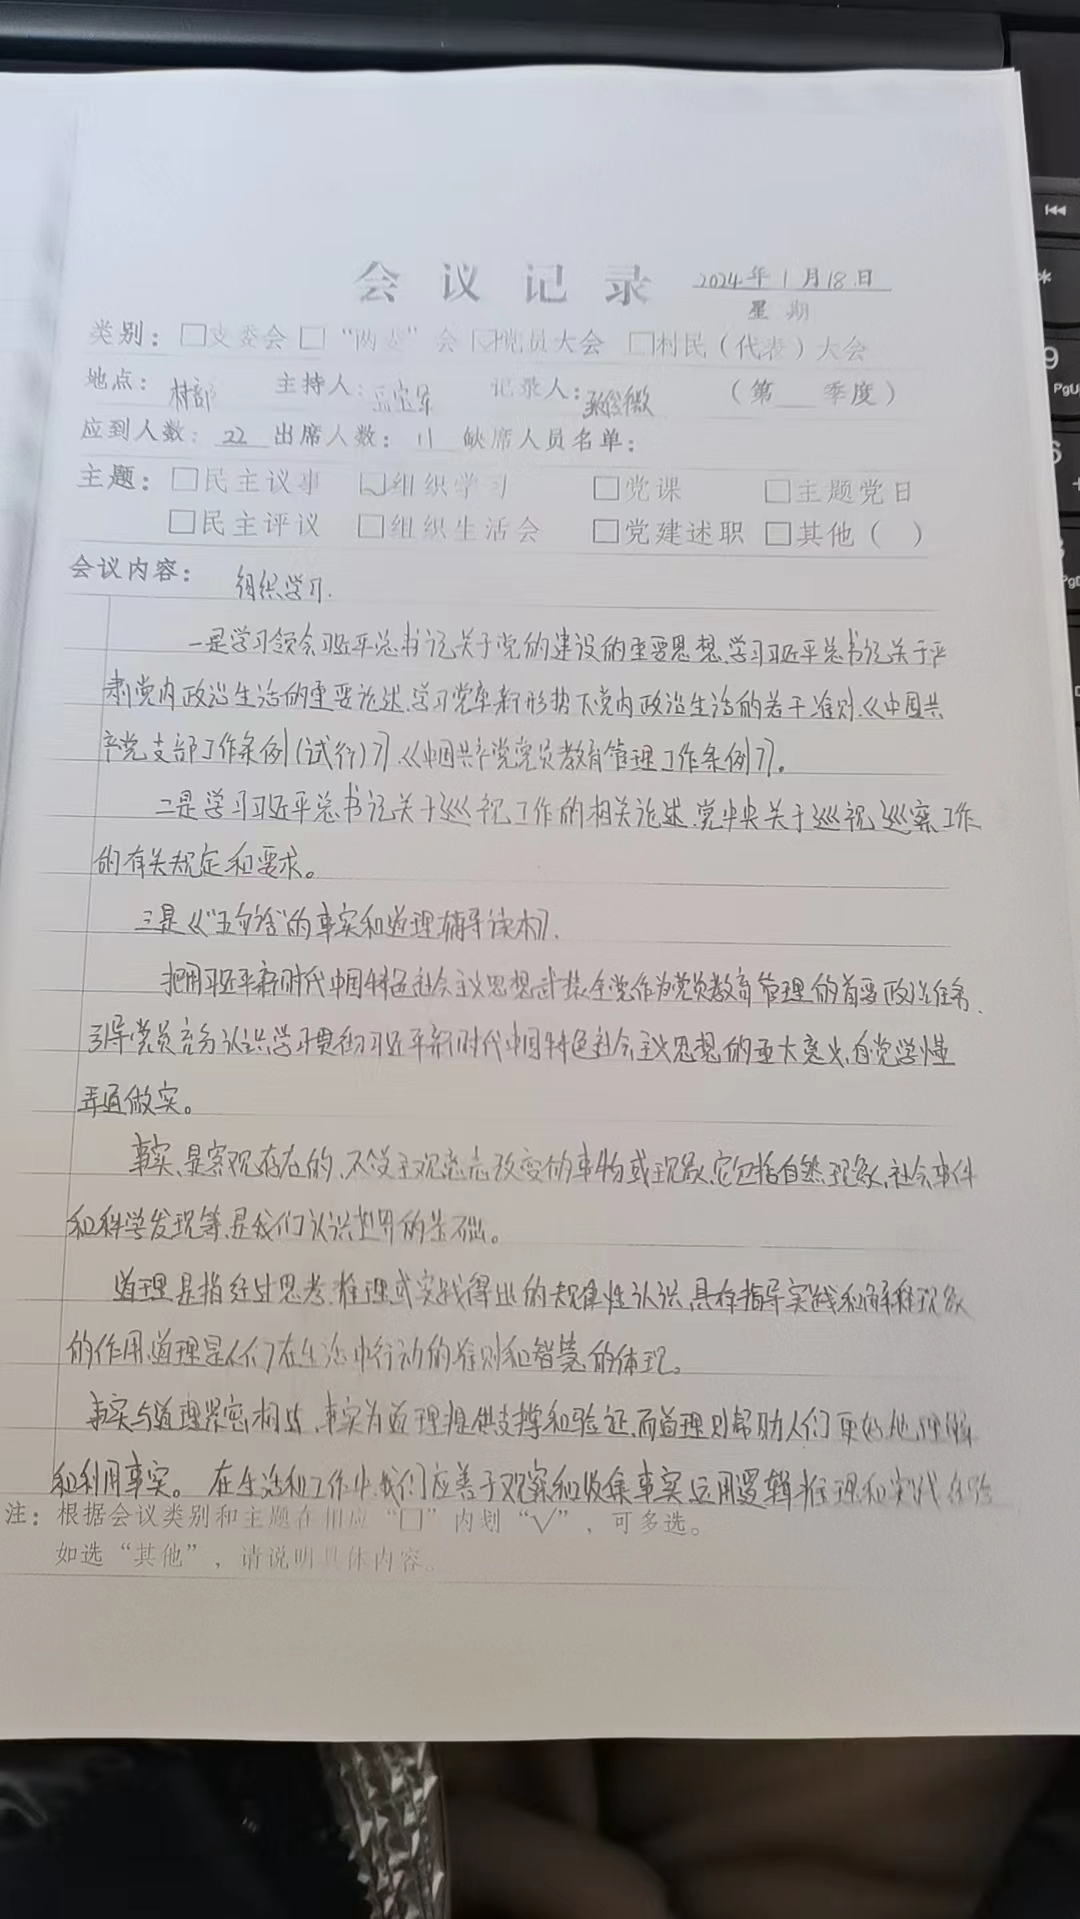 会议记录 2024年1月18日
星期
类别：□支委会 □“两委”会 ☑党员大会 □村民（代表）大会
地点：村部 主持人： 记录人： （第 季度）
应到人数：22 出席人数：11 缺席人员名单：
主题：□民主议事 ☑组织学习 □党课 □主题党日
□民主评议 □组织生活会 □党建述职 □其他（ ）
会议内容：组织学习.
一是学习领会习近平总书记关于党的建设的重要思想,学习习近平总书记关于严
肃党内政治生活的重要论述,学习党章新形势下党内政治生活的若干准则,《中国共
产党支部工作条例(试行)》,《中国共产党党员教育管理工作条例》。
二是学习习近平总书记关于巡视工作的相关论述,党中央关于巡视巡察工作
的有关规定和要求。
三是《“五句话”的事实和道理辅导读本》.
把用习近平新时代中国特色社会主义思想武装全党作为党员教育管理的首要政治任务,
引导党员充分认识学习贯彻习近平新时代中国特色社会主义思想的重大意义,自觉学懂
弄通做实。
事实,是客观存在的,不受主观意志改变的事物或现象,它包括自然现象,社会事件
和科学发现等,是我们认识世界的基础。
道理是指经过思考,推理或实践得出的规律性认识,具有指导实践和解释现象
的作用,道理是人们在生活中行动的准则和智慧的体现。
事实与道理紧密相连,事实为道理提供支撑和验证,而道理则帮助人们更好地理解
和利用事实。在生活和工作中,我们应善于观察和收集事实,运用逻辑推理和实践经验
注：根据会议类别和主题在相应“□”内划“√”，可多选。
如选“其他”，请说明具体内容。
PgU
9
6